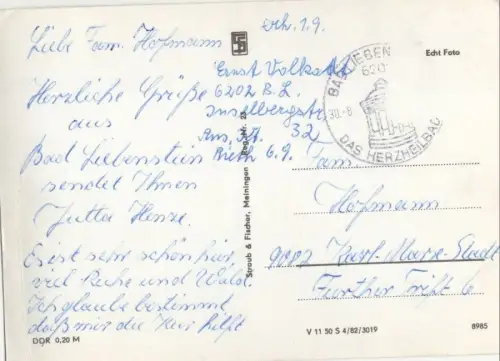 Liebe Fam. Hofmann
Herzliche Grüße
aus
Bad Liebenstein
sendet Ihnen
Jutta Henze.
Es ist sehr schön hier,
viel Ruhe und Wald.
Ich glaube bestimmt
daß mir die Kur hilft
DDR 0,20 M
erh. 1.9.
Ernst Volkstdt
6202 B.L.
Inselbergstr
32
6.9.
Straub & Fischer, Meiningen Reg.-Nr. 23
Echt Foto
BAD LIEBEN
620
30.-8
DAS HERZHEILBAD
Fam
Hofmann
9002 Karl-Marx-Stadt
Further Trift 6
V 11 50 S 4/82/3019
8985